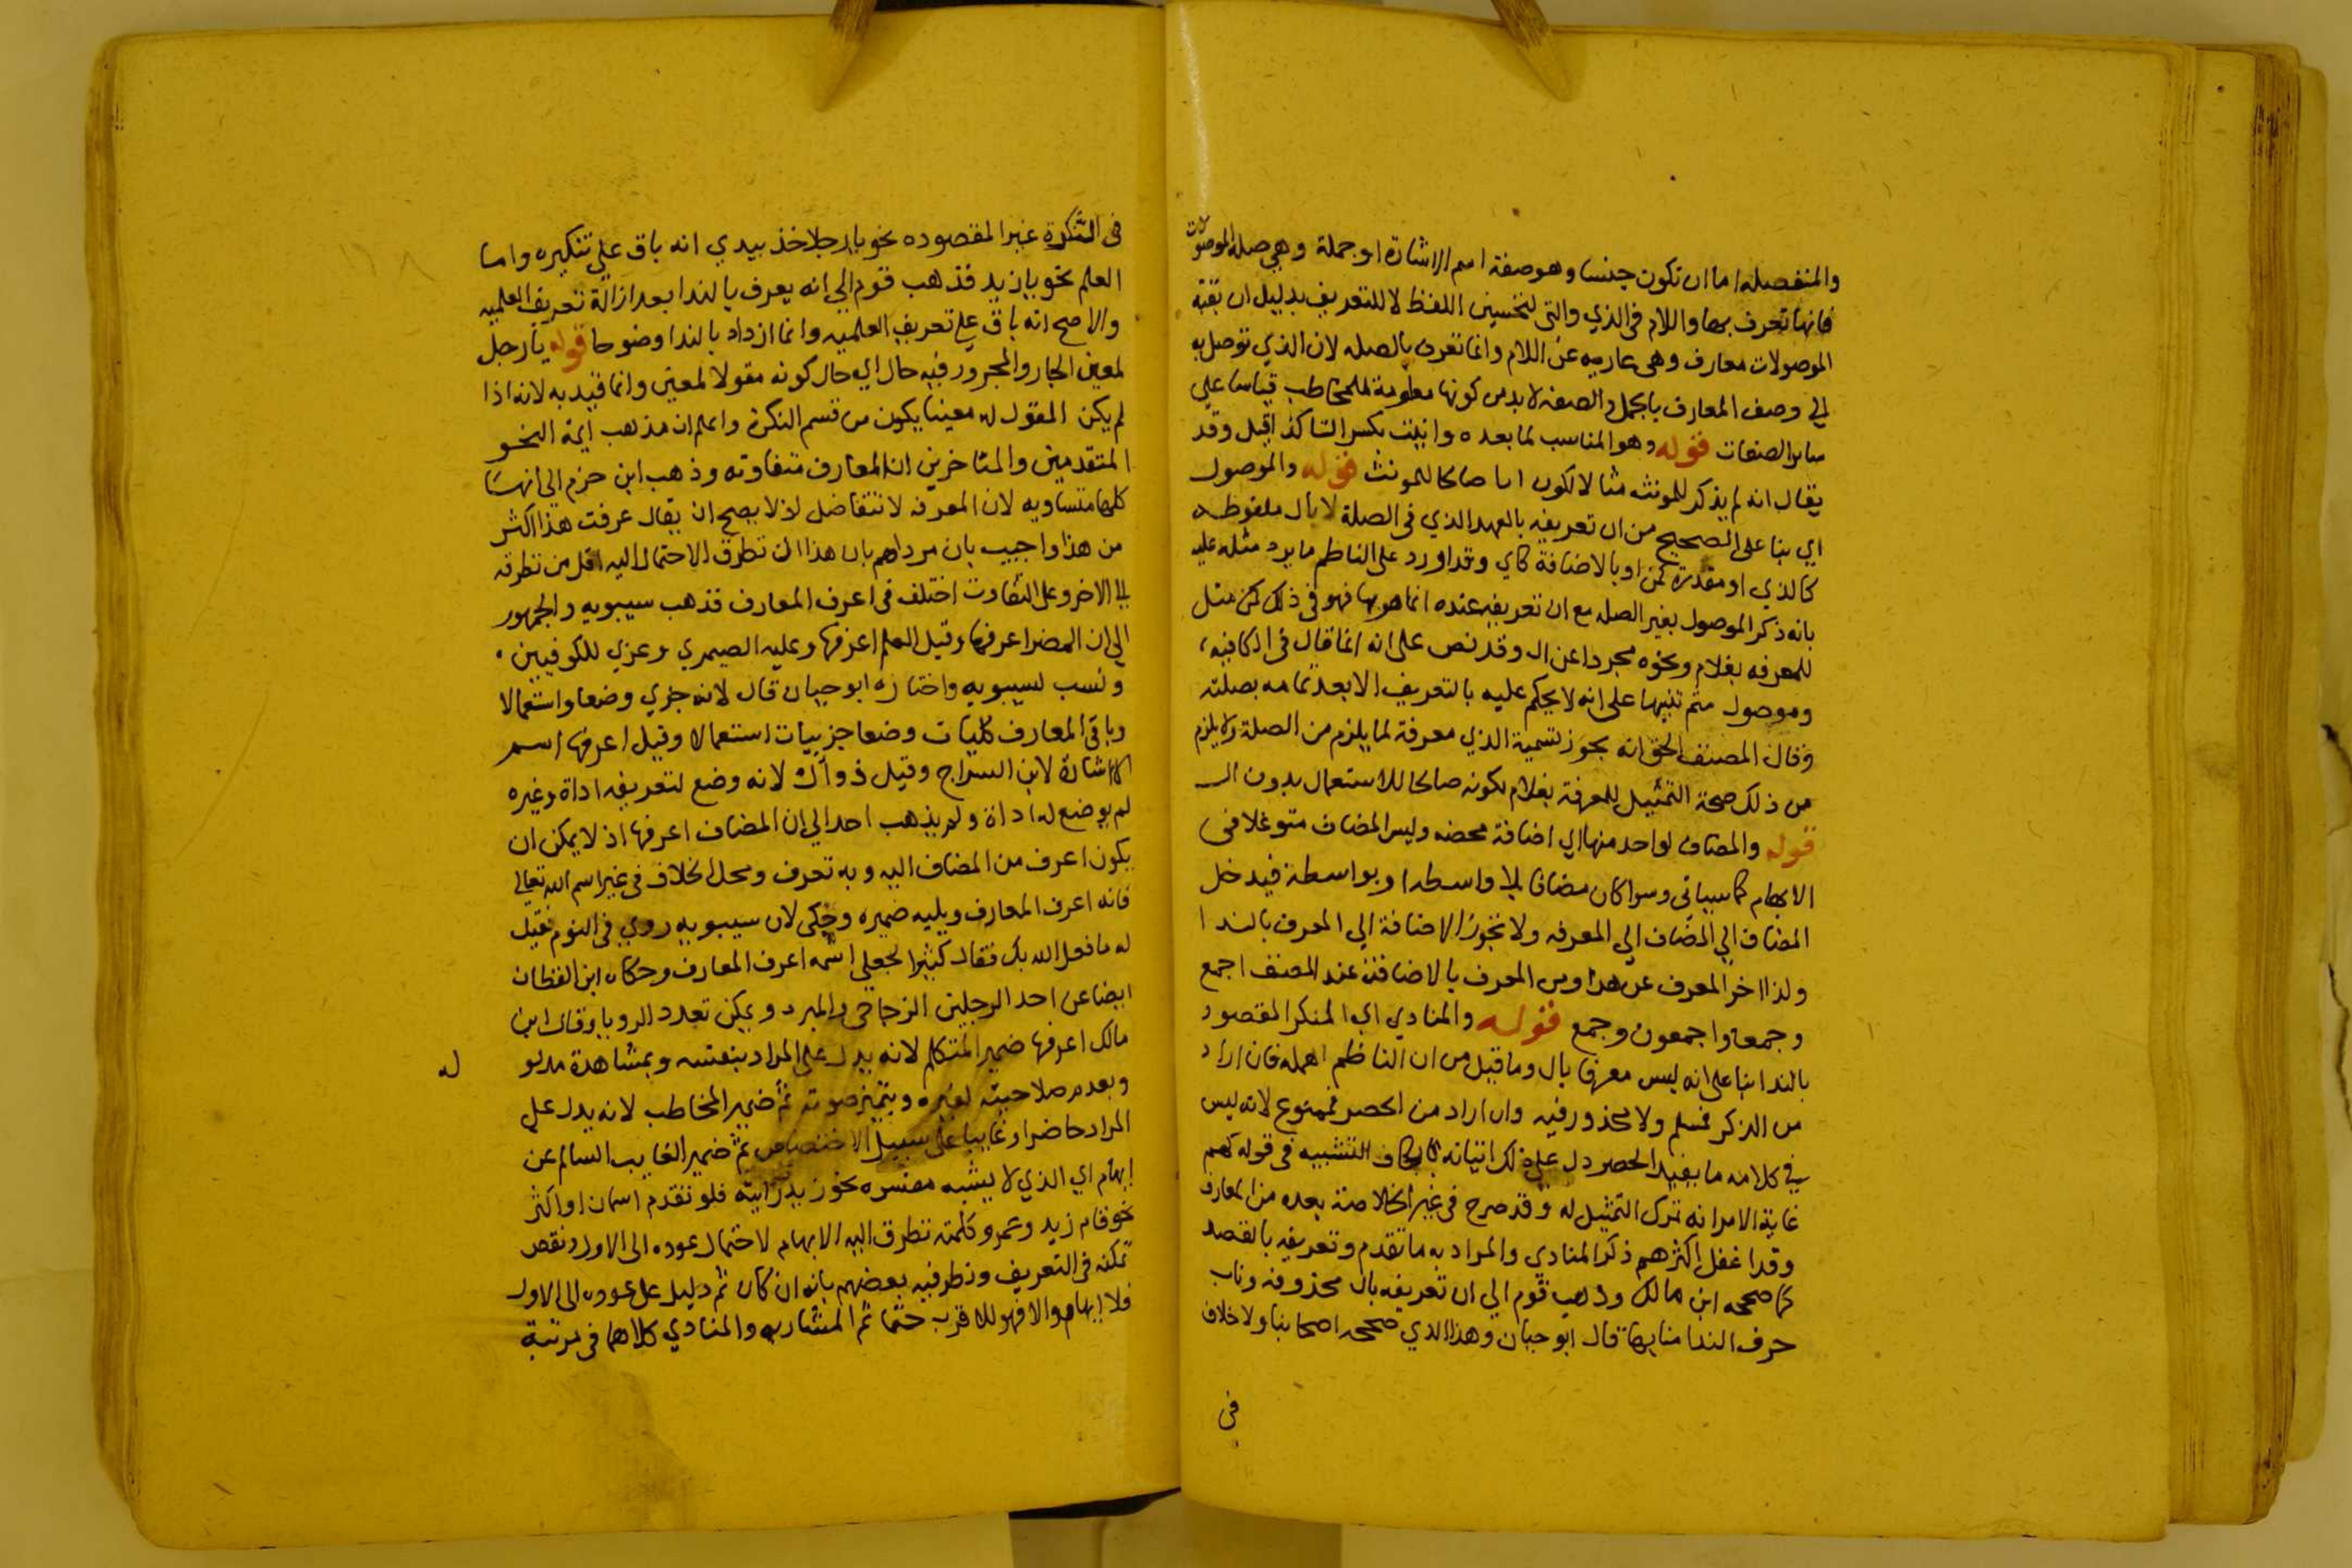 والمنفصله اما ان تكون جنسا وهو صفة اسم الاشارة او جملة وهي صلة الموصولات
فانها تعرف بها واللام في الذي والتي لتحسين اللفظ لا للتعريف بدليل ان بقية
الموصولات معارف وهي عارية عن اللام وانما تعرف بالصله لان الذي توصل به
الي وصف المعارف بالجمل والصفة لابد من كونها معلومة للمخاطب قياسا علي
ساير الصفات قوله وهو المناسب لما بعده وانبت بكسر التا كذا قيل وقد
يقال انه لم يذكر للمونثه مثالا لكون اما صالحا للمونث قوله والموصول
اي بنا على الصحيح من ان تعريفه بالعهد الذي في الصلة لا بال ملفوظه
كالذي او مقدرة كمن او بالاضافة كاي وقد اورد على الناظم ما يرد مثله عليه
بانه ذكر الموصول بغير الصله مع ان تعريفه عنده انما هو بها فهو في ذلك كمن مثل
للمعرفه بغلام ونحوه مجردا عن ال وقد نص على انه انما قال في الكافيه
وموصول متم تنبيها على انه لا يحكم عليه بالتعريف الا بعد تمامه بصلته
وقال المصنف الحق انه يجوز تسمية الذي معرفة لما يلزم من الصلة ولا يلزم
من ذلك صحة التمثيل للمعرفة بغلام لكونه صالحا للاستعمال بدون ال
قوله والمضاف لواحد منها اي اضافة محضه وليس المضاف متوغلا في
الابهام كما سياتي وسوا كان مضافا بلا واسطه او بواسطة فيدخل
المضاف الي المضاف الي المعرفه ولا تجوز الاضافة الي المعرف بالندا
ولذا اخر المعرف عن هذا ومن المعرف بالاضافة عند المصنف اجمع
وجمعا واجمعون وجمع قوله والمنادي اي المنكر المقصود
بالندا بنا على انه ليس معرفا بال وما قيل من ان الناظم اهمله فان اراد
من الذكر فسلم ولا محذور فيه وان اراد من الحصر فممنوع لانه ليس
في كلامه ما يفيد الحصر دل على ذلك اتيانه بكاف التشبيه في قوله كهم
غاية الامر انه ترك التمثيل له وقد صرح في غير الخلاصة بعده من المعارف
وقد اغفل اكثرهم ذكر المنادي والمراد به ما تقدم وتعريفه بالقصد
كما صححه ابن مالك وذهب قوم الي ان تعريفه بال محذوفه وناب
حرف الندا منابها قال ابو حيان وهذا الذي صححه اصحابنا ولا خلاف
في
في النكرة غير المقصوده نحو يا رجلا خذ بيدي انه باق علي تنكيره واما
العلم نحو يا زيد فذهب قوم الي انه يعرف بالندا بعد ازالة تعريف العلميه
والاصح انه باق علي تعريف العلميه وانما ازداد بالندا وضوحا قوله يا رجل
لمعين الجار والمجرور فيه حال اي حال كونه مقولا لمعين وانما قيد به لانه اذا
لم يكن المقول له معينا يكون من قسم النكرة واعلم ان مذهب ايمة النحو
المتقدمين والمتاخرين ان المعارف متفاوته وذهب ابن حزم الي انها
كلها متساويه لان المعرفه لا تتفاضل اذ لا يصح ان يقال عرفت هذا اكثر
من هذا واجيب بان مرادهم بان هذا ان تطرق الاحتمال اليه اقل من تطرقه
الي الاخر وعلى التفاوت اختلف في اعرف المعارف فذهب سيبويه والجمهور
الي ان المضمر اعرفها وقيل العلم اعرفها وعليه الصيمري وعزي للكوفيين
ونسب لسيبويه واختاره ابو حيان قال لانه جزي وضعا واستعمالا
وباقي المعارف كليات وضعا جزييات استعمالا وقيل اعرفها اسم
الاشارة لابن السراج وقيل ذو ال لانه وضع لتعريفه اداة وغيره
لم يوضع له اداة ولم يذهب احد الي ان المضاف اعرفها اذ لا يمكن ان
يكون اعرف من المضاف اليه وبه تعرف ومحل الخلاف في غير اسم الله تعالي
فانه اعرف المعارف ويليه ضميره وحكي لان سيبويه روي في النوم فقيل
له ما فعل الله بك فقال كثيرا لجعلي اسمه اعرف المعارف وحكاه ابن القطان
ايضا عن احد الرجلين الزجاجي والمبرد ويمكن تعدد الرويا وقال ابن
مالك اعرفها ضمير المتكلم لانه يدل على المراد بنفسه وبمشاهدة مدلو
له
وبعدم صلاحيته لغيره وبتميز صوته ثم ضمير المخاطب لانه يدل علي
المراد حاضرا وغايبا على سبيل الاختصاص ثم ضمير الغايب السالم عن
ابهام اي الذي لا يشبه مفسره نحو زيد رايته فلو تقدم اسمان او اكثر
نحو قام زيد وعمرو كلمته تطرق اليه الابهام لاحتمال عوده الى الاول ونقص
تمكنه في التعريف ونظر فيه بعضهم بانه ان كان ثم دليل على عوده الى الاول
فلا ابهام والا فهو للاقرب حتما ثم المشار به والمنادي كلاهما في مرتبة